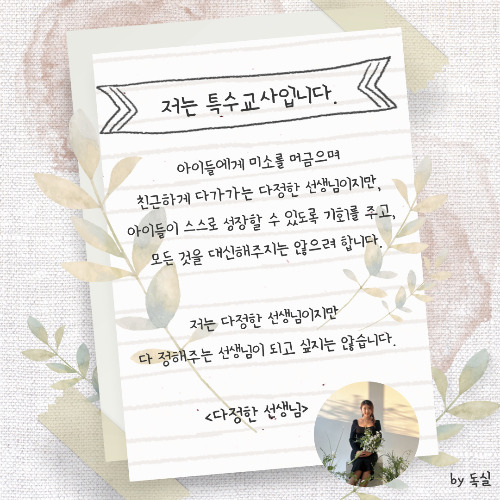 저는 특수교사입니다.
아이들에게 미소를 머금으며
친근하게 다가가는 다정한 선생님이지만,
아이들이 스스로 성장할 수 있도록 기회를 주고,
모든 것을 대신해주지는 않으려 합니다.
저는 다정한 선생님이지만
다 정해주는 선생님이 되고 싶지는 않습니다.
<다정한 선생님>
by 독실